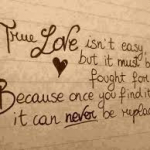 True Love isn't easy,
but it must be
fought for
Because once you find it
it can never be replac